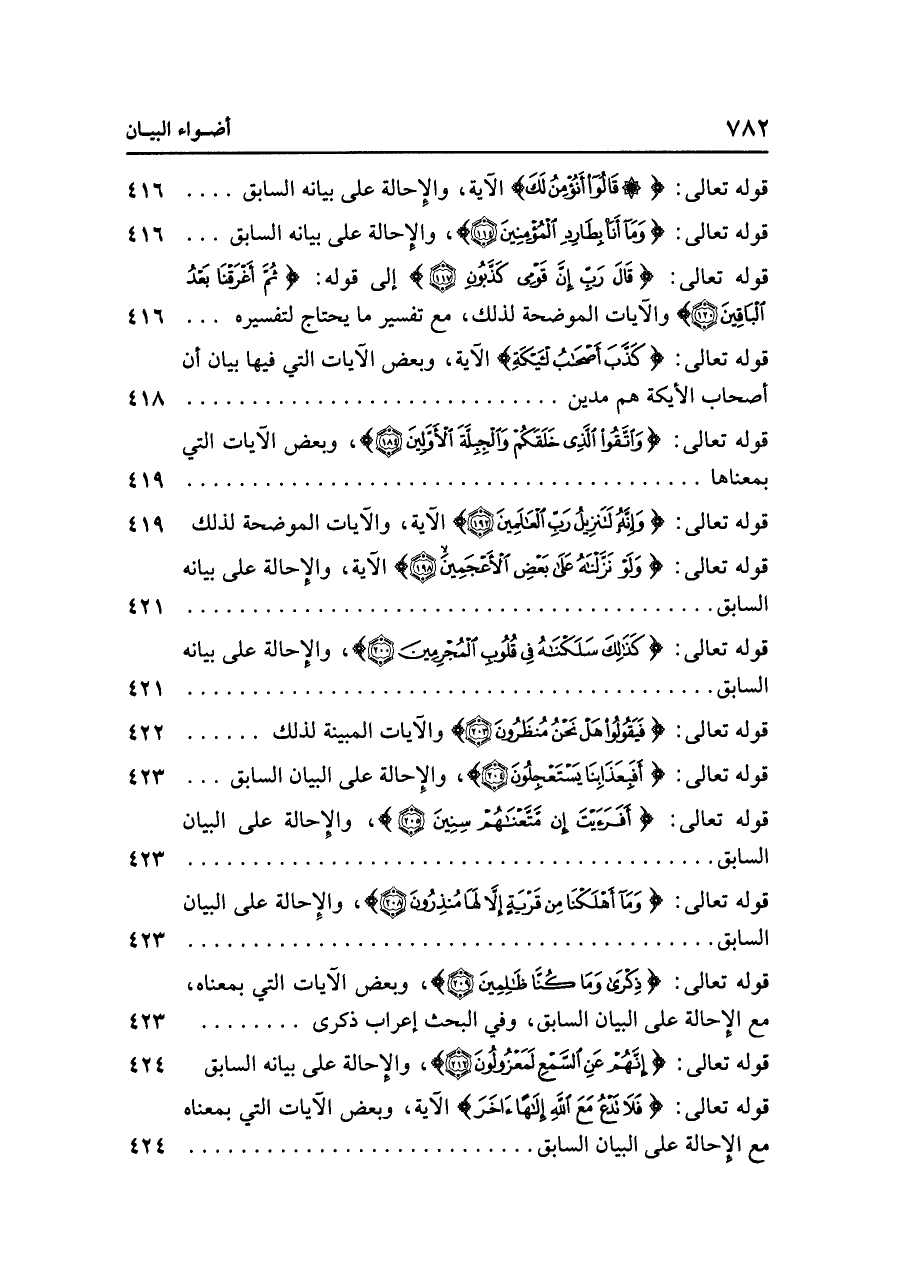 ٧٨٢ أضـواء البيـان
قوله تعالى: ﴿ ۞ قَالُوٓا۟ أَنُؤْمِنُ لَكَ﴾ الآية، والإحالة على بيانه السابق .... ٤١٦
قوله تعالى: ﴿ وَمَآ أَنَا۠ بِطَارِدِ ٱلْمُؤْمِنِينَ ۝١١٤﴾، والإحالة على بيانه السابق ... ٤١٦
قوله تعالى: ﴿ قَالَ رَبِّ إِنَّ قَوْمِى كَذَّبُونِ ۝١١٧ ﴾ إلى قوله: ﴿ ثُمَّ أَغْرَقْنَا بَعْدُ
ٱلْبَاقِينَ ۝١٢٠﴾ والآيات الموضحة لذلك، مع تفسير ما يحتاج لتفسيره ... ٤١٦
قوله تعالى: ﴿ كَذَّبَ أَصْحَٰبُ لْـَٔيْكَةِ﴾ الآية، وبعض الآيات التي فيها بيان أن
أصحاب الأيكة هم مدين ............................. ٤١٨
قوله تعالى: ﴿ وَٱتَّقُوا۟ ٱلَّذِى خَلَقَكُمْ وَٱلْجِبِلَّةَ ٱلْأَوَّلِينَ ۝١٨٤﴾، وبعض الآيات التي
بمعناها ........................................ ٤١٩
قوله تعالى: ﴿ وَإِنَّهُۥ لَتَنزِيلُ رَبِّ ٱلْعَٰلَمِينَ ۝١٩٢﴾ الآية، والآيات الموضحة لذلك ٤١٩
قوله تعالى: ﴿ وَلَوْ نَزَّلْنَٰهُ عَلَىٰ بَعْضِ ٱلْأَعْجَمِينَ ۝١٩٨﴾ الآية، والإحالة على بيانه
السابق ......................................... ٤٢١
قوله تعالى: ﴿ كَذَٰلِكَ سَلَكْنَٰهُ فِى قُلُوبِ ٱلْمُجْرِمِينَ ۝٢٠٠﴾، والإحالة على بيانه
السابق ......................................... ٤٢١
قوله تعالى: ﴿ فَيَقُولُوا۟ هَلْ نَحْنُ مُنظَرُونَ ۝٢٠٣﴾ والآيات المبينة لذلك ...... ٤٢٢
قوله تعالى: ﴿ أَفَبِعَذَابِنَا يَسْتَعْجِلُونَ ۝٢٠٤﴾، والإحالة على البيان السابق ... ٤٢٣
قوله تعالى: ﴿ أَفَرَءَيْتَ إِن مَّتَّعْنَٰهُمْ سِنِينَ ۝٢٠٥ ﴾، والإحالة على البيان
السابق ......................................... ٤٢٣
قوله تعالى: ﴿ وَمَآ أَهْلَكْنَا مِن قَرْيَةٍ إِلَّا لَهَا مُنذِرُونَ ۝٢٠٨﴾، والإحالة على البيان
السابق ......................................... ٤٢٣
قوله تعالى: ﴿ ذِكْرَىٰ وَمَا كُنَّا ظَٰلِمِينَ ۝٢٠٩﴾، وبعض الآيات التي بمعناه،
مع الإحالة على البيان السابق، وفي البحث إعراب ذكرى ........ ٤٢٣
قوله تعالى: ﴿ إِنَّهُمْ عَنِ ٱلسَّمْعِ لَمَعْزُولُونَ ۝٢١٢﴾، والإحالة على بيانه السابق ٤٢٤
قوله تعالى: ﴿ فَلَا نَدْعُ مَعَ ٱللَّهِ إِلَٰهًا ءَاخَرَ ﴾ الآية، وبعض الآيات التي بمعناه
مع الإحالة على البيان السابق ........................... ٤٢٤